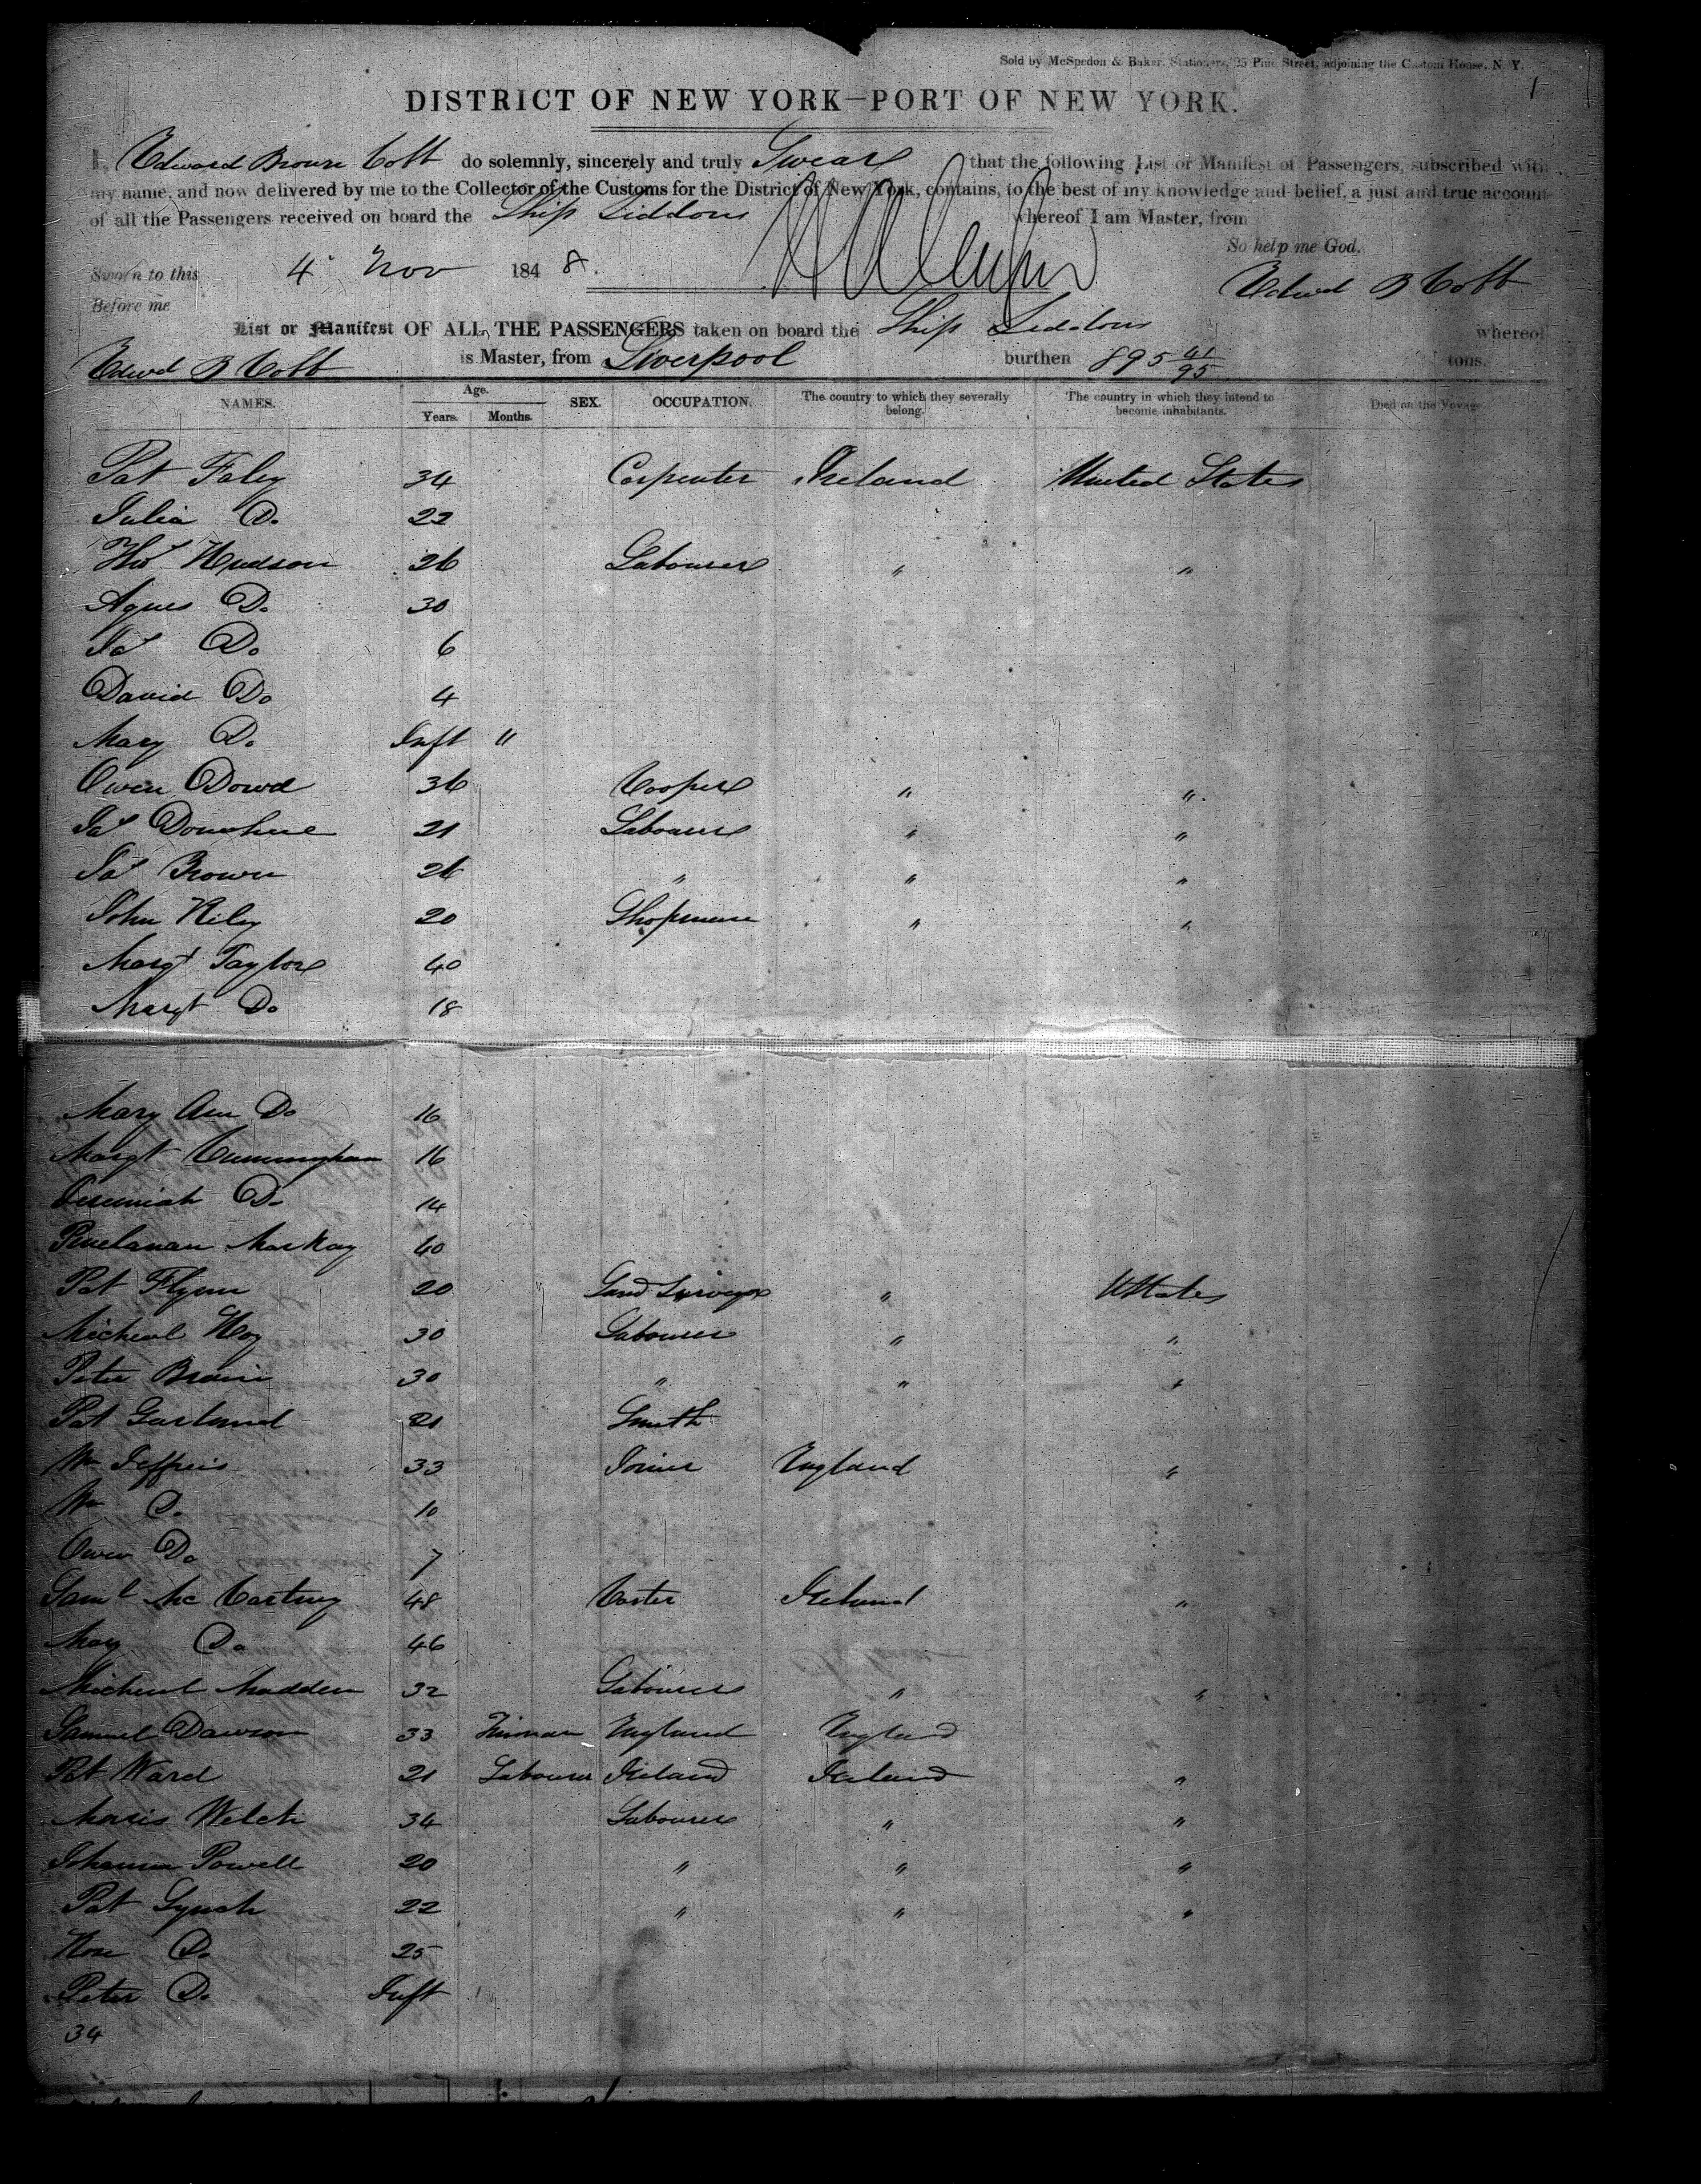 Sold by McSpedon & Baker, Stationers, 25 Pine Street, adjoining the Custom House, N. Y.
1
DISTRICT OF NEW YORK—PORT OF NEW YORK.
I, Edward Brown Cobb do solemnly, sincerely and truly Swear that the following List or Manifest of Passengers, subscribed with
my name, and now delivered by me to the Collector of the Customs for the District of New York, contains, to the best of my knowledge and belief, a just and true account
of all the Passengers received on board the Ship Siddons whereof I am Master, from
So help me God.
Sworn to this 4 Nov 1848.
Edwd B Cobb
Before me
List or Manifest OF ALL THE PASSENGERS taken on board the Ship Siddons whereof
Edwd B Cobb is Master, from Liverpool burthen 895 41/95 tons.
NAMES. Age. Years. Months. SEX. OCCUPATION. The country to which they severally belong. The country in which they intend to become inhabitants. Died on the Voyage.
Pat Foley 34 Carpenter Ireland United States
Julia Do 22
Thos Hudson 26 Labourer " "
Agnes Do 30
Jas Do 6
David Do 4
Mary Do Inft "
Owen Dowd 36 Cooper " "
Jas Donohue 21 Labourer " "
Jas Brown 26 " " "
John Riley 20 Shopman " "
Margt Taylor 40
Margt Do 18
Mary Ann Do 16
Margt Cunningham 16
Jeremiah Do 14
MacKay 40
Pat Flynn 20 Land Surveyor " U States
Micheal Hoy 30 Labourer " "
Peter 30 " " "
Pat Garland 21 Smith
Wm Jeffries 33 Joiner England "
Wm Do 10
Owen Do 7
Saml Mc Cartney 48 Carter Ireland "
Mary Do 46
Micheal Madden 32 Labourer " "
Samuel Dawson 33 England England
Pat Ward 21 Labourer Ireland Ireland "
Moris Welch 34 Labourer " "
Johanna Powell 20 " " "
Pat Lynch 22 " " "
Rose Do 25
Peter Do Inft
34